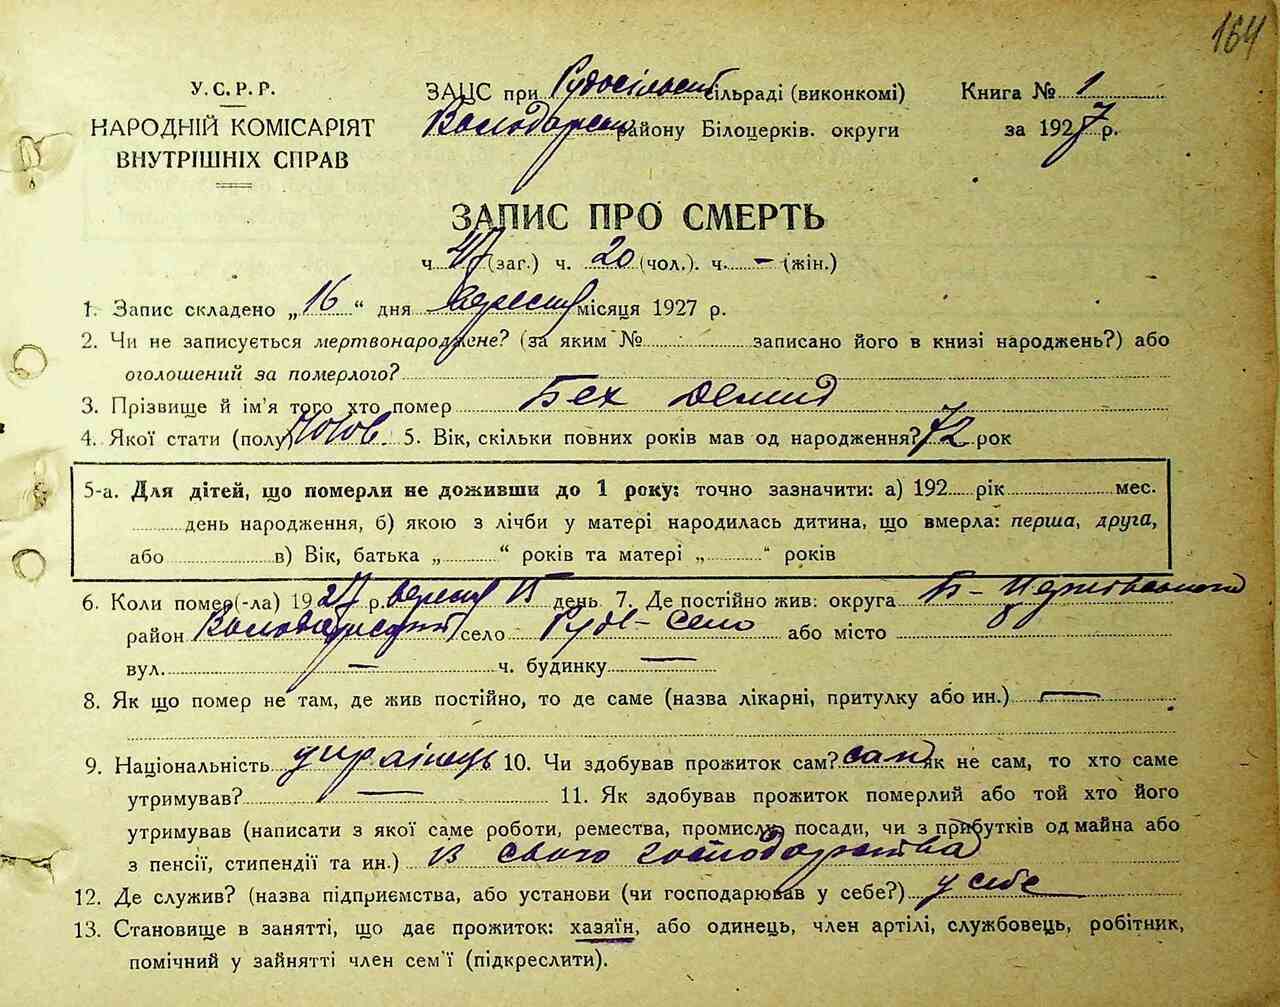 164
У.С.Р.Р.
НАРОДНІЙ КОМІСАРІЯТ
ВНУТРІШНІХ СПРАВ
ЗАЦС при Рудосільські сільраді (виконкомі)
Володарськ. району Білоцерків. округи
Книга № 1
за 1927 р.
ЗАПИС ПРО СМЕРТЬ
ч. 47 (заг.) ч. 20 (чол.). ч. – (жін.)
1. Запис складено „16“ дня вересня місяця 1927 р.
2. Чи не записується мертвонароджене? (за яким № записано його в книзі народжень?) або
оголошений за померлого?
3. Прізвище й ім'я того хто помер Бех Демид
4. Якої стати (полу) чолов. 5. Вік, скільки повних років мав од народження? 72 рок
5-а. Для дітей, що померли не доживши до 1 року: точно зазначити: а) 192 рік мес.
день народження, б) якою з лічби у матері народилась дитина, що вмерла: перша, друга,
або в) Вік, батька „ “ років та матері „ “ років
6. Коли помер(-ла) 1927 р. вересня 15 день 7. Де постійно жив: округа Б-Церківського
район Володарський село Рудо-село або місто
вул. – ч. будинку –
8. Як що помер не там, де жив постійно, то де саме (назва лікарні, притулку або ин.) –
9. Національність українець 10. Чи здобував прожиток сам? сам як не сам, то хто саме
утримував? – 11. Як здобував прожиток померлий або той хто його
утримував (написати з якої саме роботи, ремества, промислу, посади, чи з прибутків од майна або
з пенсії, стипендії та ин.) із свого господарства
12. Де служив? (назва підприємства, або установи (чи господарював у себе?) у себе
13. Становище в занятті, що дає прожиток: хазяїн, або одинець, член артілі, службовець, робітник,
помічний у зайнятті член сем'ї (підкреслити).